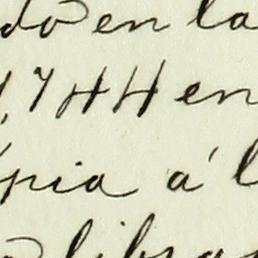 do en la
1744 en
pia á l
libra